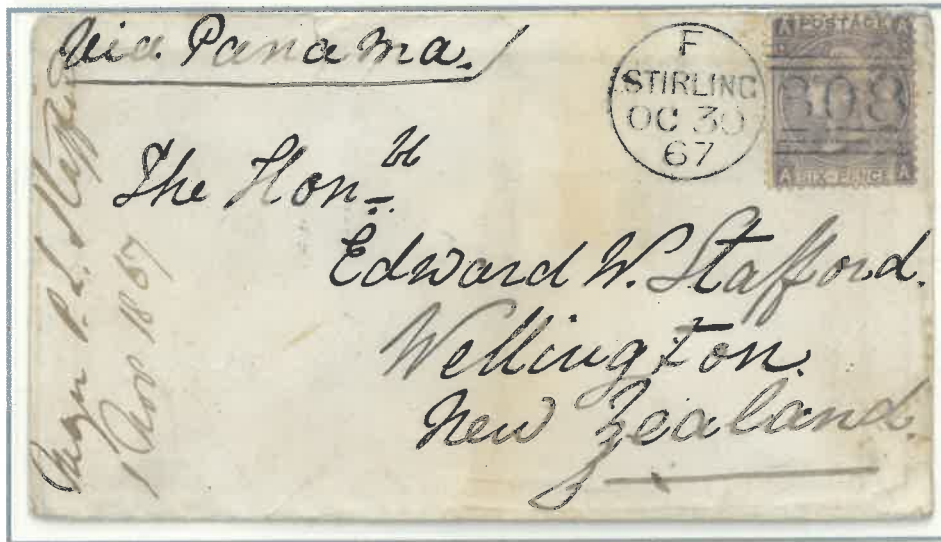 Via Panama.
F
STIRLING
OC 30
67
A POSTAGE A
308
A SIX-PENCE A
The Hon.ble
Edward W. Stafford.
Wellington.
New Zealand.
1867